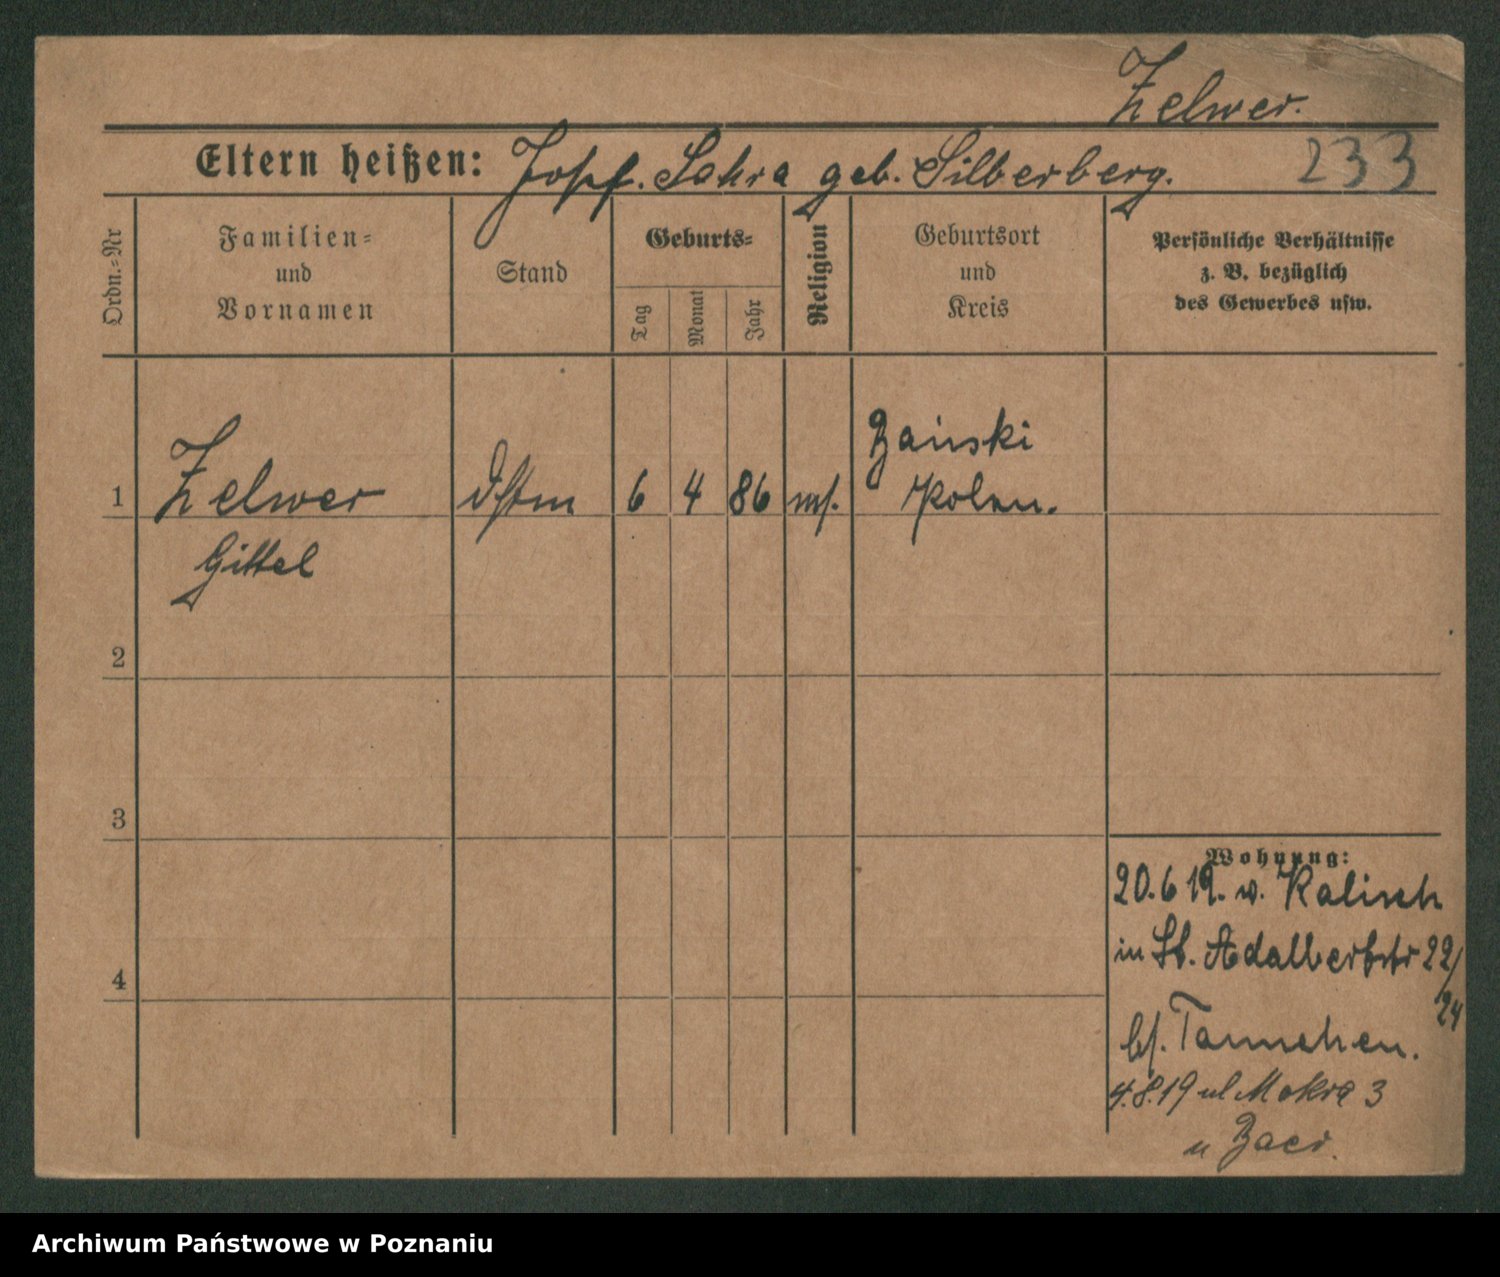 Zelwer.
Eltern heißen: Josef. Sahra geb. Silberberg.
233
Ordn.=Nr
Familien=
und
Vornamen
Stand
Geburts=
Tag
Monat
Jahr
Religion
Geburtsort
und
Kreis
Persönliche Verhältnisse
z. B. bezüglich
des Gewerbes usw.
1 Zelwer 6 4 86 mos. Zainski
Polen.
Gittel
2
3
4
Wohnung:
20.6 19. v. Kalisch
in St. Adalbertstr 22/
24
bei. Tannchen.
4.8.19 ul Mokra 3